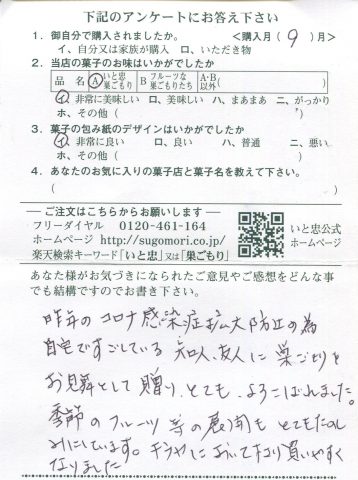 下記のアンケートにお答え下さい
1. 御自分で購入されましたか。 <購入月( 9 )月>
イ、自分又は家族が購入 ロ、いただき物
2. 当店の菓子のお味はいかがでしたか
品名 A いと忠巣ごもり B フルーツな巣ごもりたち A・B以外( )
イ、非常に美味しい ロ、美味しい ハ、まあまあ ニ、がっかり
ホ、その他( )
3. 菓子の包み紙のデザインはいかがでしたか
イ、非常に良い ロ、良い ハ、普通 ニ、悪い
ホ、その他( )
4. あなたのお気に入りの菓子店と菓子名を教えて下さい。
( )
ご注文はこちらからお願いします
フリーダイヤル 0120-461-164
ホームページ http://sugomori.co.jp/
楽天検索キーワード「いと忠」又は「巣ごもり」
いと忠公式
ホームページ
あなた様がお気づきになられたご意見やご感想をどんな事
でも結構ですのでお書き下さい。
昨年のコロナ感染症拡大防止の為
自宅ですごしている 知人、友人に 巣ごもりを
お見舞として 贈り、とても、よろこばれました。
季節の フルーツ 等の展開も とてもたのし
みにしています。 において 買いやすく
なりました